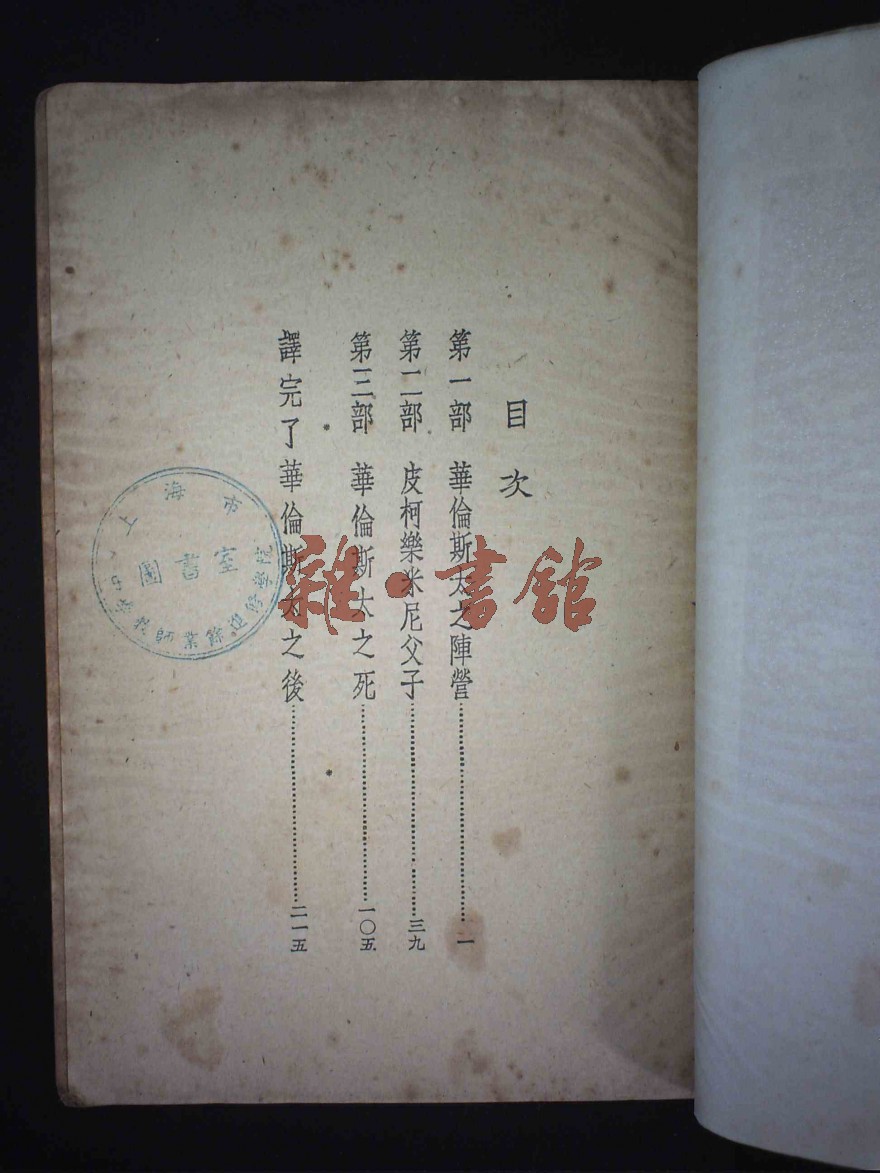 目次
第一部　華倫斯太之陣營……一
第二部　皮柯樂米尼父子……三九
第三部　華倫斯太之死……一〇五
譯完了華倫斯太之後……二一五
雜·書館
上海市
圖書室
教師業餘進修學院